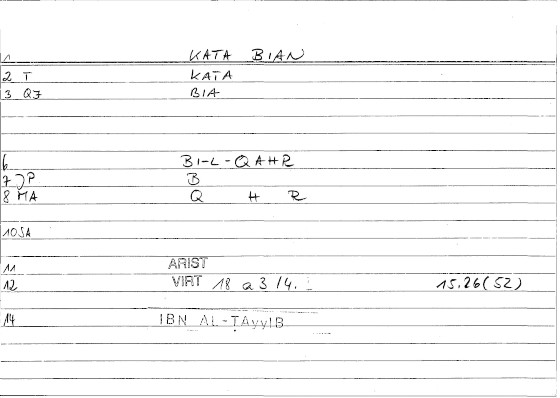 1 KATA BIAN
2 T KATA
3 QJ BIA
6 BI-L-QAHR
7 JP B
8 MA Q H R
10 SA
11 ARIST
12 VIRT 18 a 3/4. 15.26(52)
14 IBN AL-ṬAyyIB